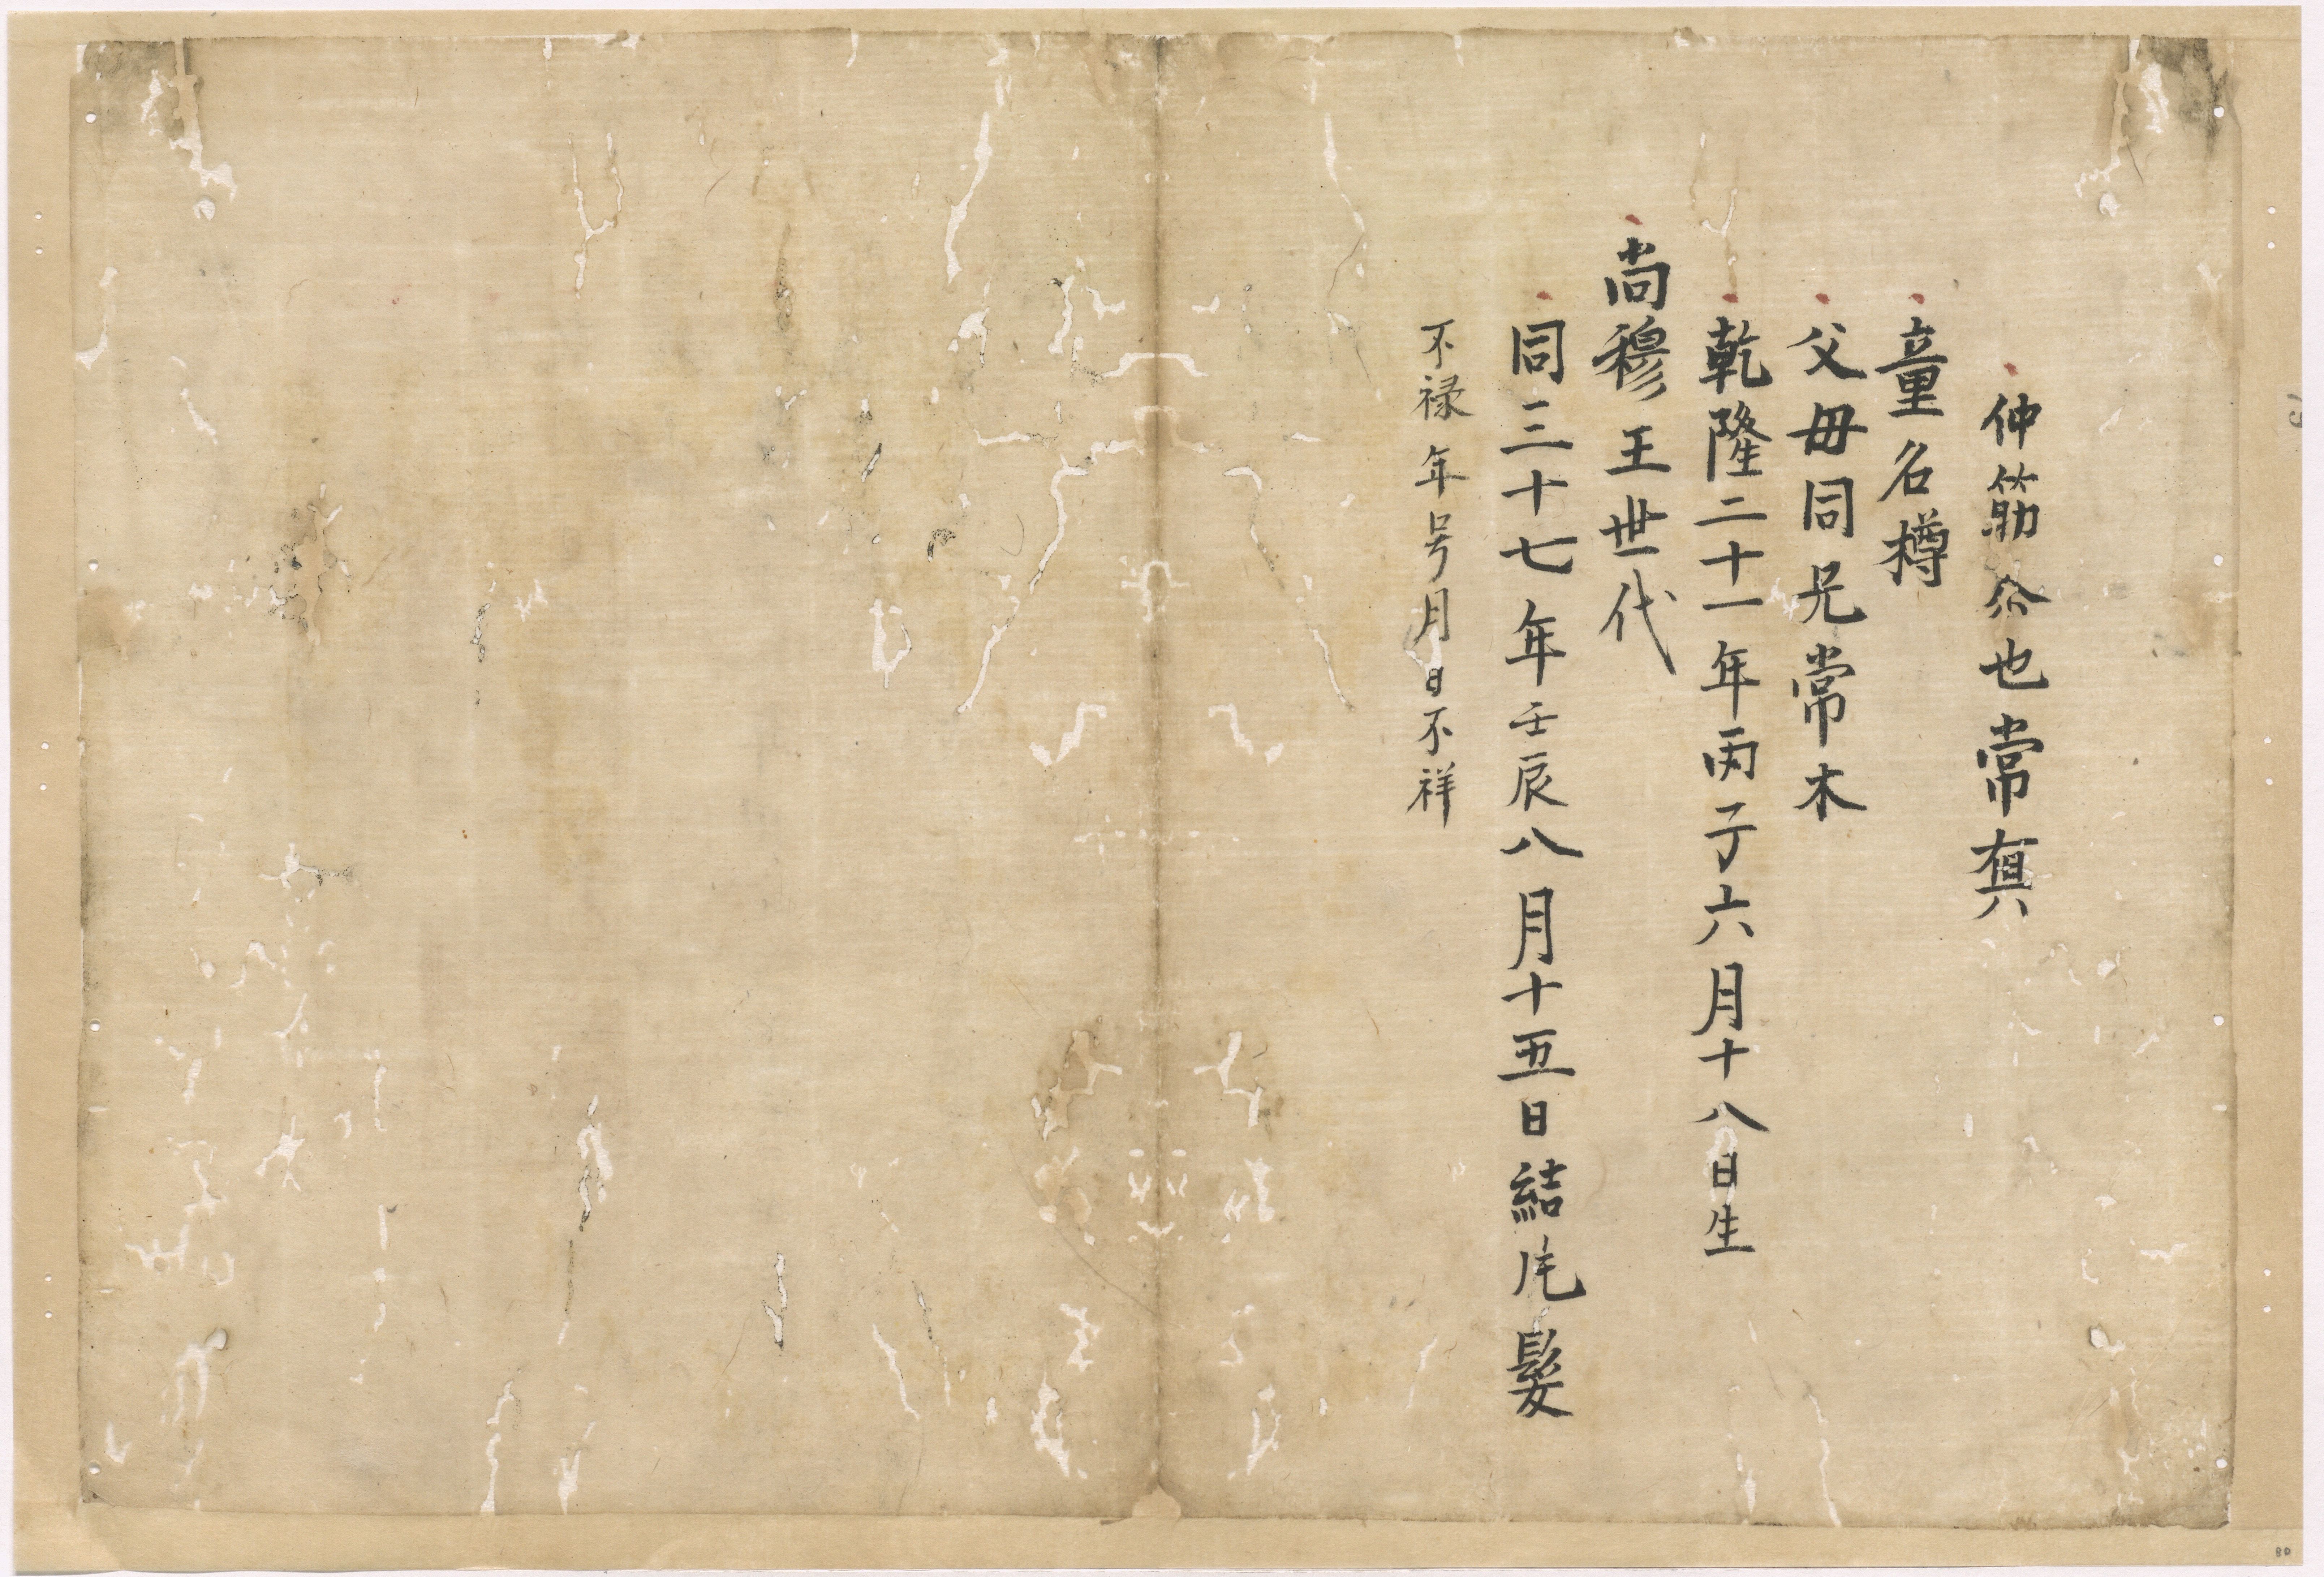 仲筋仝也常眞
童名樽
父毋同兄常木
乾隆二十一年丙子六月十八日生
尚穆王世代
同三十七年壬辰八月十五日結片髮
不禄年号月日不祥
80